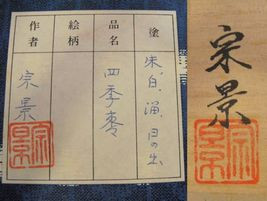 塗
朱、白、溜、日の出
品名
四季棗
絵柄
作者
宗景
宗景
宗景
宗景